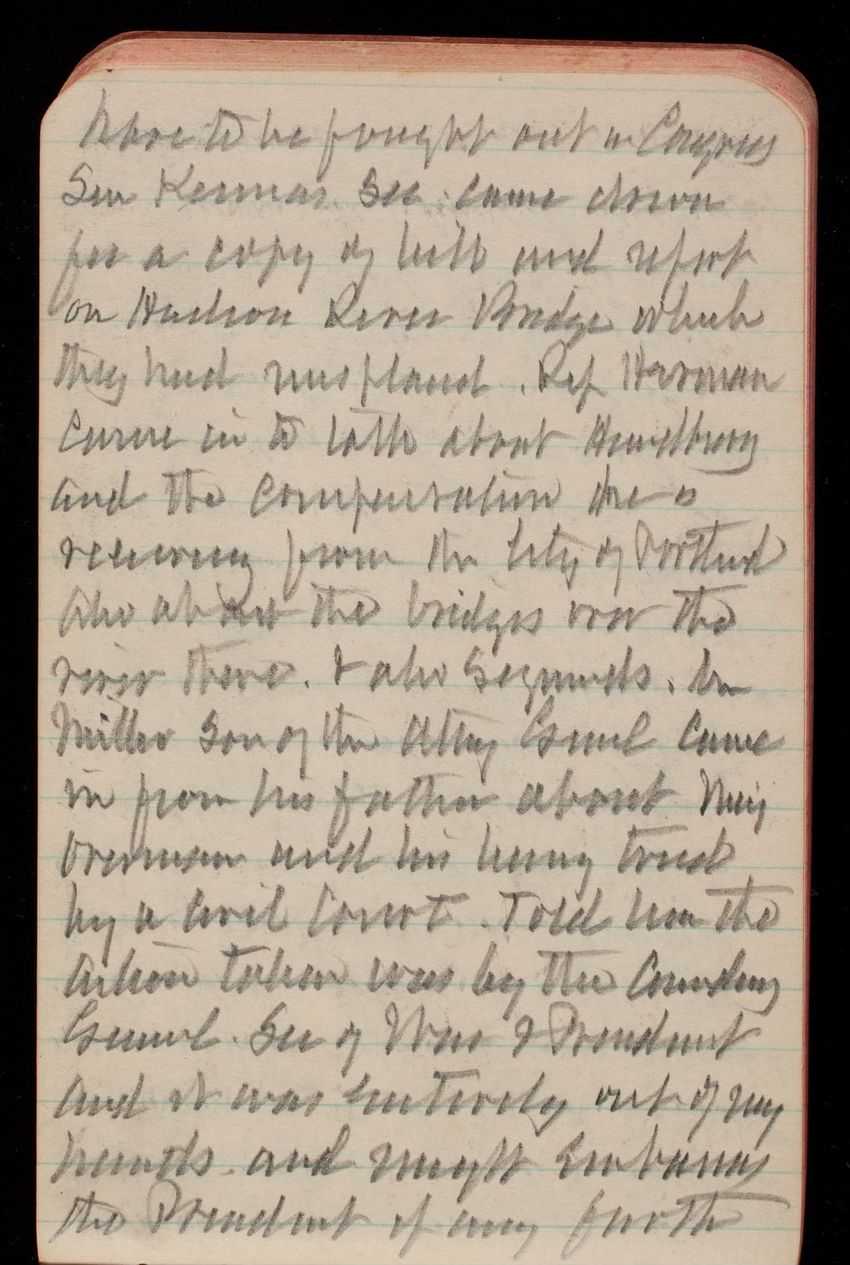 have to be fought out in Congress
Sen Kennas Sec. came down
for a copy of bill and report
on Hudson River Bridge which
they had misplaced. Rep Herman
came in to talk about
and the compensation he is
receiving from the City of Portland
also about the bridges over the
river there. & also Segments.
Miller son of the Atty Genrl came
in from his father about Maj
Overman and his being tried
by a Civil Court. Told him the
action taken was by the Comdng
General. Sec of War & President
and it was entirely out of my
hands and might Embarrass
the President if any furth